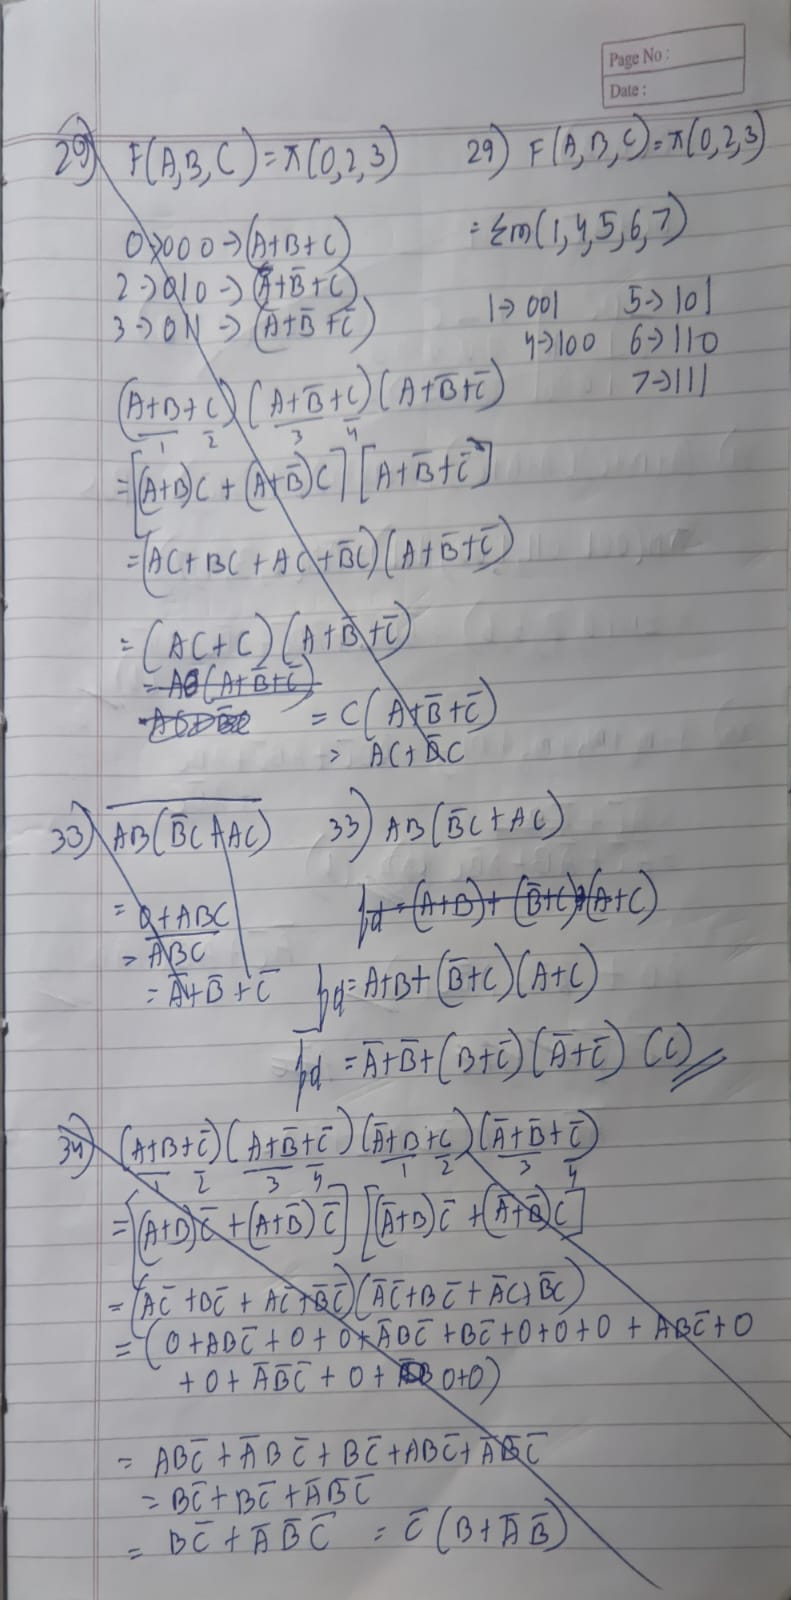 Page No :
Date :
29) F(A,B,C) = π(0,2,3)
0→000→(A+B+C)
2→010→(A+B̅+C)
3→011→(A+B̅+C̅)
(A+B+C)(A+B̅+C)(A+B̅+C̅)
1 2 3 4
=[(A+B)C+(A+B̅)C][A+B̅+C̅]
=(AC+BC+AC+B̅C)(A+B̅+C̅)
=(AC+C)(A+B̅+C̅)
= C(A+B̅+C̅)
= AC+B̅C
29) F(A,B,C)=π(0,2,3)
= Σm(1,4,5,6,7)
1→001 5→101
4→100 6→110
7→111
33) AB(B̅C+AC)
= 0+ABC
= ABC
= A̅+B̅+C̅
33) AB(B̅C+AC)
fd = (A+B)+(B̅+C)(A+C)
fd = A+B+(B̅+C)(A+C)
fd = A̅+B̅+(B+C̅)(A̅+C̅) (C)
34) (A+B+C̅)(A+B̅+C̅)(A̅+B+C)(A̅+B̅+C̅)
1 2 3 4 1 2 3 4
=[(A+B)C̅+(A+B̅)C̅][(A̅+B)C̅+(A̅+B̅)C]
=(AC̅+BC̅+AC̅+B̅C̅)(A̅C̅+BC̅+A̅C+B̅C)
=(0+ABC̅+0+0+A̅BC̅+BC̅+0+0+0+ABC̅+0
+0+A̅B̅C̅+0+ 0+0)
= ABC̅+A̅BC̅+BC̅+ABC̅+A̅B̅C̅
= BC̅+BC̅+A̅B̅C̅
= BC̅+A̅B̅C̅ = C̅(B+A̅B̅)